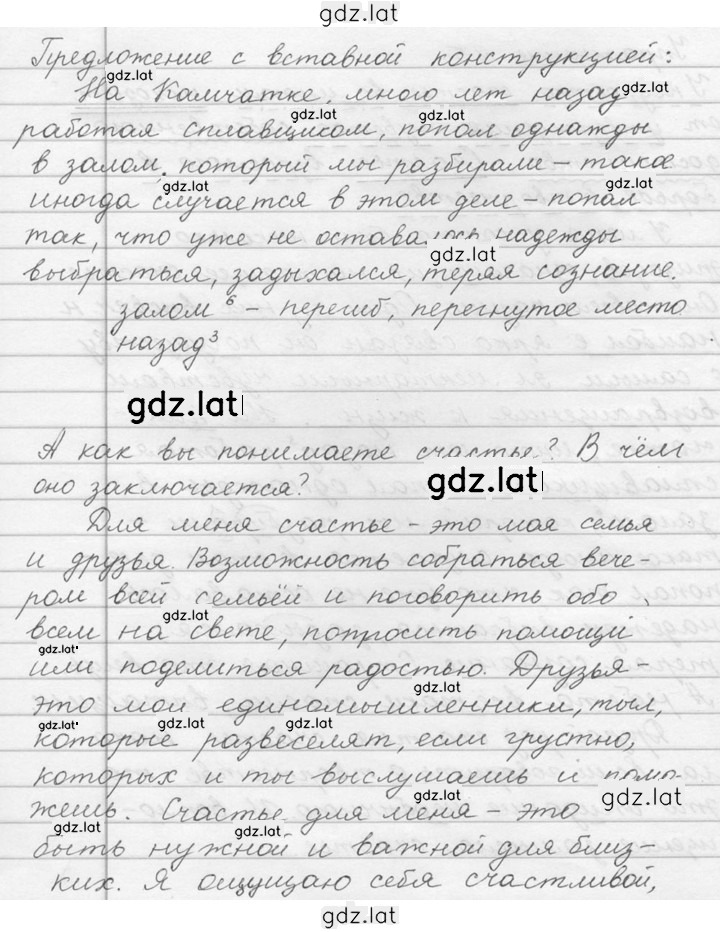 gdz.lat
Предложение с вставной конструкцией:
gdz.lat
На Камчатке, много лет назад
gdz.lat
gdz.lat gdz.lat
работая сплавщиком, попал однажды
в залом, который мы разбирали – такое
gdz.lat gdz.lat
иногда случается в этом деле – попал
так, что уже не оставалось надежды
gdz.lat
выбраться, задыхался, теряя сознание.
залом⁶ – перегиб, перегнутое место
назад³
gdz.lat
А как вы понимаете счастье? В чём
gdz.lat
оно заключается?
Для меня счастье – это моя семья
и друзья. Возможность собраться вече-
ром всей семьёй и поговорить обо
gdz.lat
всем на свете, попросить помощи
gdz.lat
или поделиться радостью. Друзья –
gdz.lat
это мои единомышленники, тыл,
gdz.lat gdz.lat gdz.lat
которые развеселят, если грустно,
которых и ты выслушаешь и помо-
gdz.lat
жешь. Счастье для меня – это
gdz.lat
gdz.lat gdz.lat
быть нужной и важной для близ-
ких. Я ощущаю себя счастливой,
gdz.lat